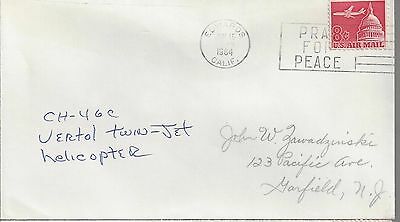 EDWARDS
1964
CALIF.
PRAY
FOR
PEACE
8¢
U.S. AIR MAIL
CH-46C
Vertol Twin-Jet
Helicopter
John W. Zawadzinski
123 Pacific Ave.
Garfield, N.J.